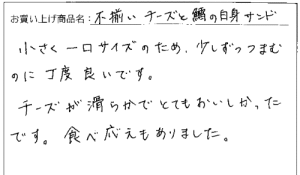 お買い上げ商品名：不揃い チーズと鱈の白身サンド
小さく一口サイズのため、少しずつつまむ
のに丁度良いです。
チーズが滑らかでとてもおいしかった
です。食べ応えもありました。